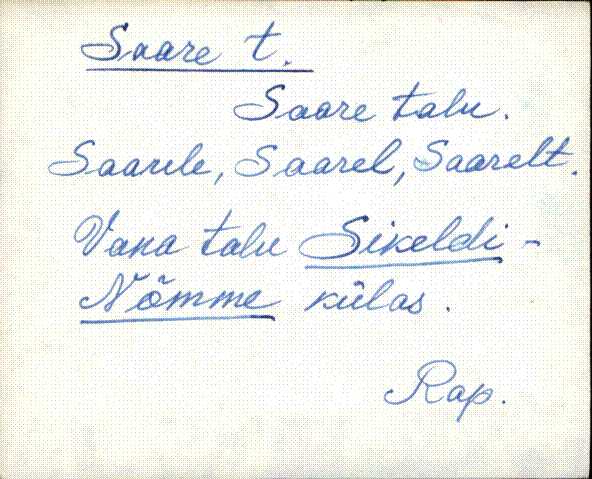 Saare t.
Saare talu.
Saarele, Saarel, Saarelt.
Vana talu Sikeldi-
Nõmme külas.
Rap.